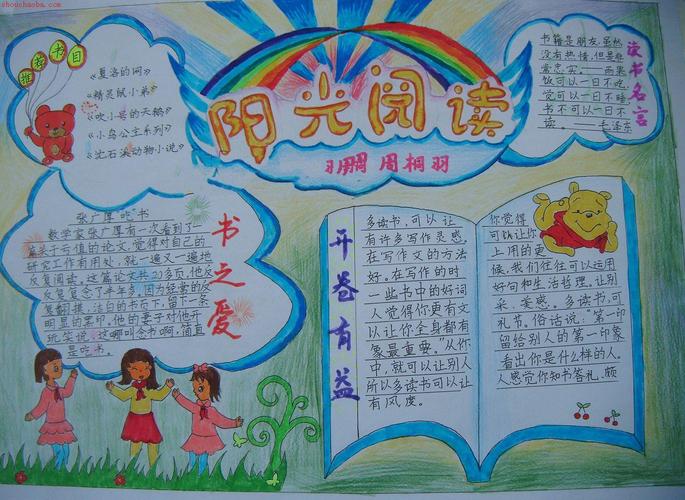 shouchaoba.com
推荐书目
《夏洛的网》
《精灵鼠小弟》
《吹小号的天鹅》
《小乌公主系列》
《沈石溪动物小说》
阳光阅读
周桐羽
书籍是朋友,虽然
没有热情,但是非
常忠实。——雨果
饭可以一日不吃,
觉可以一日不睡,
书不可以一日不
读。——毛泽东
读书名言
张广厚吃书
数学家张广厚有一次看到了一
篇关于亏值的论文,觉得对自己的
研究工作有用处,就一遍又一遍地
反复阅读。这篇论文共20多页,他反
反复复念了半年多,因为经常的反
复翻摸,洁白的书页下,留下一条
明显的黑印,他的妻子对他开
玩笑说:这哪叫念书啊,简直
是吃书。
书之爱
开卷有益
多读书,可以让
有许多写作灵感,
在写作文的方法
好。在写作的时
一些书中的好词
人觉得你更有文
以让你全身都有
象最重要。"从你
中,就可以让别人
所以多读书可以让
有风度。
你觉得
可以让你
上用的更
候,我们往往可以运用
好句和生活哲理,让别
采、美感。多读书,可
礼节。俗话说:"第一印
留给别人的第一印象
看出你是什么样的人。
人感觉你知书答礼、颇